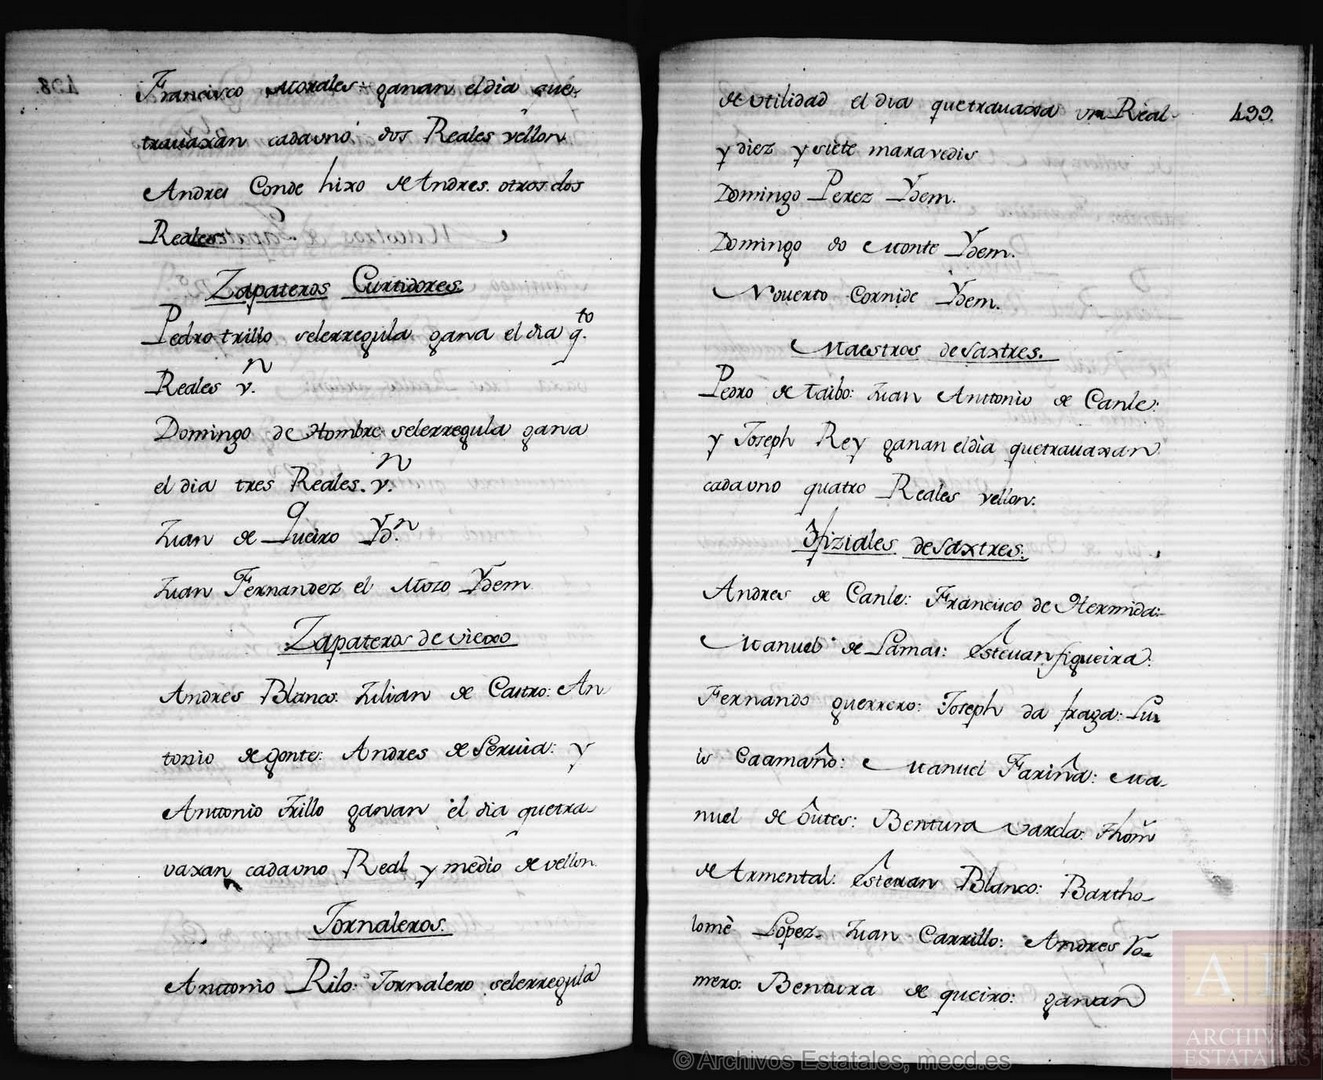 Francisco Morales ganan el dia que
travaxan cadauno dos Reales vellon
Andres Conde hixo de Andres otros dos
Reales
Zapateros Curtidores
Pedro trillo selerregula gana el dia q.to
Reales v.n
Domingo de Hombre selerregula gana
el dia tres Reales. v.n
Juan de Queiro Yd.n
Juan Fernandez el Mozo Ydem
Zapateros de viexo
Andres Blanco: Julian de Castro: An
tonio de Gonte: Andres de Servia: y
Anttonio Trillo ganan el dia quetra-
vaxan cadauno Real y medio de vellon
Jornaleros.
Anttonio Rilo: Jornalero selerregula
498.
de utilidad el dia quetravaxa un Real
y diez y siete maravedis
Domingo Perez Ydem.
Domingo do Monte Ydem.
Nouerto Cornide Ydem.
Maestros de Saxtres.
Pedro de Taibo: Juan Anttonio de Canle:
y Joseph Rey ganan el dia quetrauaxan
cadauno quatro Reales vellon:
Ofiziales de Saxtres.
Andres de Canle: Francisco de Hermida:
Manuel de Lamas: Esteuan figueira:
Fernando guerrero: Joseph da fraga: Lu
is Caamaño: Manuel Fariña: Ma-
nuel de Outes: Bentura Varela: Thom
de Armental: Esteuan Blanco: Bartho-
lome Lopez: Juan Carrillo: Andres Ro-
mero: Bentura de queiro: ganan
499.
AE
ARCHIVOS
ESTATALES
© Archivos Estatales, mecd.es